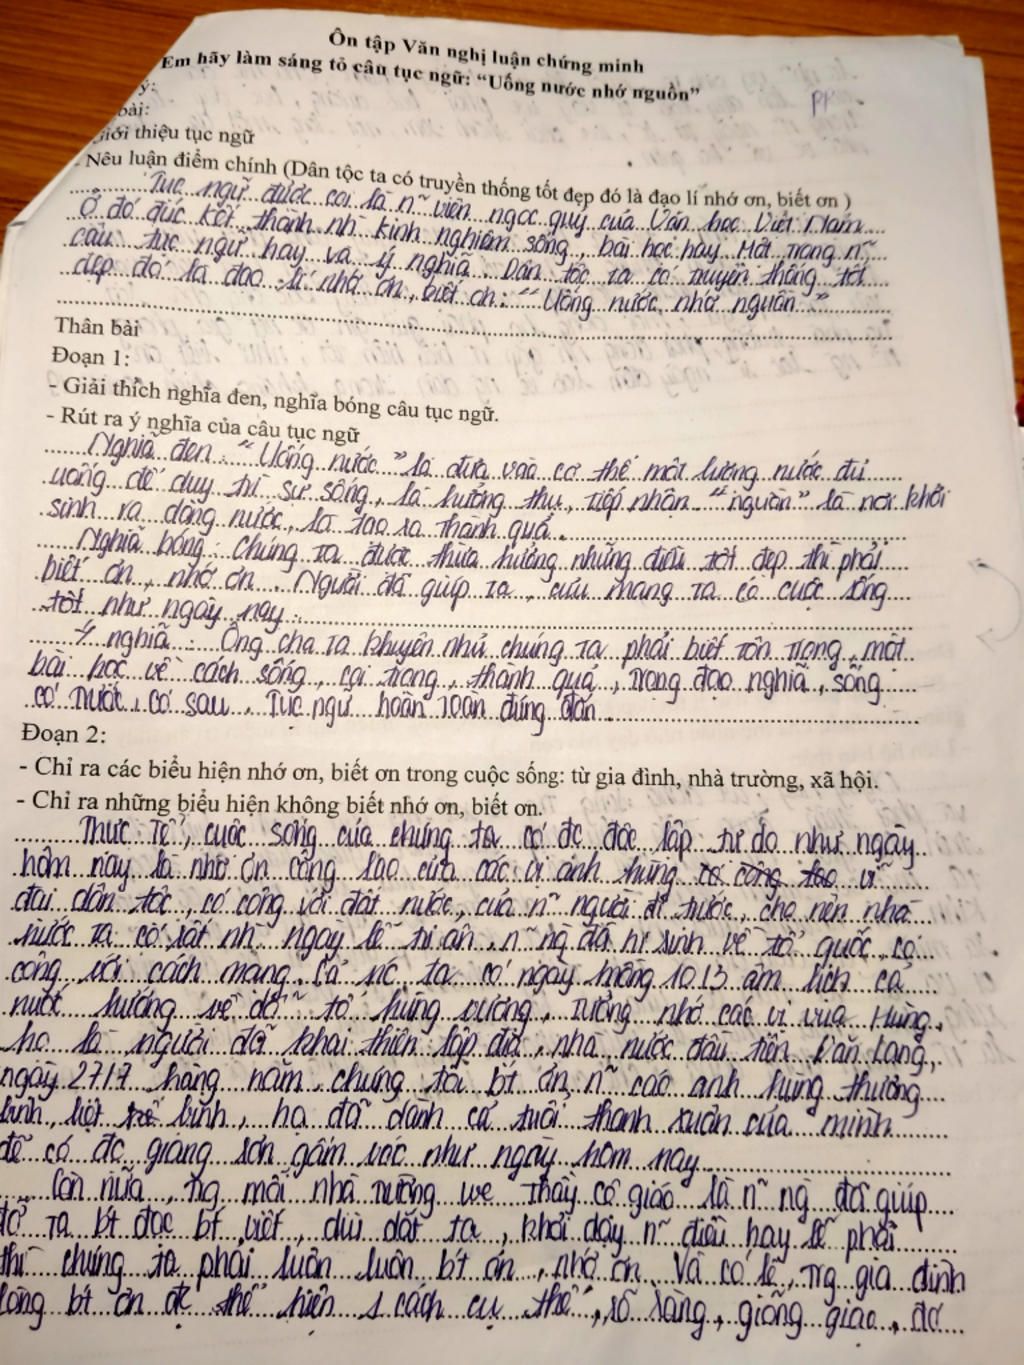 Ôn tập Văn nghị luận chứng minh
Em hãy làm sáng tỏ câu tục ngữ: "Uống nước nhớ nguồn"
ý:
bài:
Giới thiệu tục ngữ
- Nêu luận điểm chính (Dân tộc ta có truyền thống tốt đẹp đó là đạo lí nhớ ơn, biết ơn )
Tục ngữ được coi là n~ viên ngọc quý của Văn học Việt Nam
Ở đó đúc kết thành nh` kinh nghiệm sống, bài học hay. Một trong n~
câu tục ngữ hay và ý nghĩa. Dân tộc ta có truyền thống tốt
đẹp đó là đạo lí nhớ ơn, biết ơn: "Uống nước nhớ nguồn"
Thân bài
Đoạn 1:
- Giải thích nghĩa đen, nghĩa bóng câu tục ngữ.
- Rút ra ý nghĩa của câu tục ngữ
Nghĩa đen: "Uống nước" là đưa vào cơ thể một lượng nước đủ
uống để duy trì sự sống, là hưởng thụ, tiếp nhận "nguồn" là nơi khởi
sinh ra dòng nước, là tạo ra thành quả.
Nghĩa bóng: Chúng ta được thừa hưởng những điều tốt đẹp thì phải
biết ơn, nhớ ơn. Người đã giúp ta, cưu mang ta có cuộc sống
tốt như ngày nay.
Ý nghĩa: Ông cha ta khuyên nhủ chúng ta phải biết tôn trọng, một
bài học về cách sống, coi trọng, thành quả, trọng đạo nghĩa, sống
có trước, có sau. Tục ngữ hoàn toàn đúng đắn.
Đoạn 2:
- Chỉ ra các biểu hiện nhớ ơn, biết ơn trong cuộc sống: từ gia đình, nhà trường, xã hội.
- Chỉ ra những biểu hiện không biết nhớ ơn, biết ơn.
Thực tế, cuộc sống của chúng ta có đc độc lập tự do như ngày
hôm nay là nhờ ơn công lao của các vị anh hùng có công lao vĩ
đại dân tộc, có công với đất nước, của n~ người đi trước, cho nên nhà
nước ta có rất nh` ngày lễ tri ân, n~ ng` đã hi sinh về tổ quốc, có
công với cách mạng. Cả nc ta có ngày mồng 10.13 âm lịch cả
nước hướng về đất tổ hùng vương, tưởng nhớ các vị vua Hùng,
họ là người đã khai thiên lập địa, nhà nước đầu tiên Văn Lang,
ngày 27.17 hàng năm, chúng tôi bt ơn n~ các anh hùng thương
binh, liệt binh, họ đã dành cả tuổi thanh xuân của mình
để có đc giang sơn gấm vóc như ngày hôm nay
Còn nữa, ng mái nhà trường thầy cô giáo là n~ ng` đã giúp
đỡ ta bt đọc bt viết, dìu dắt ta, khơi dậy n~ điều hay lẽ phải
thì chúng ta phải luôn luôn bt ơn, nhớ ơn. Và có lẽ, trg gia đình
lòng bt ơn đc thể hiện 1 cách cụ thể, rõ ràng, đó